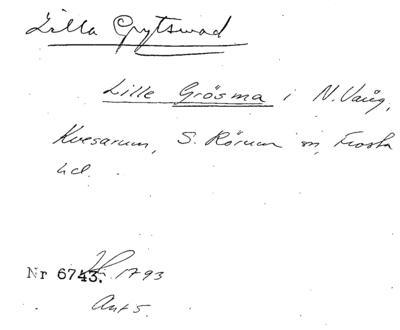 Lilla Grytswad
Lille Grösma i N. Vång,
Kvesarum, S. Rörum sn, Frosta
hd.
Nr 6743. 1793
Ant 5.